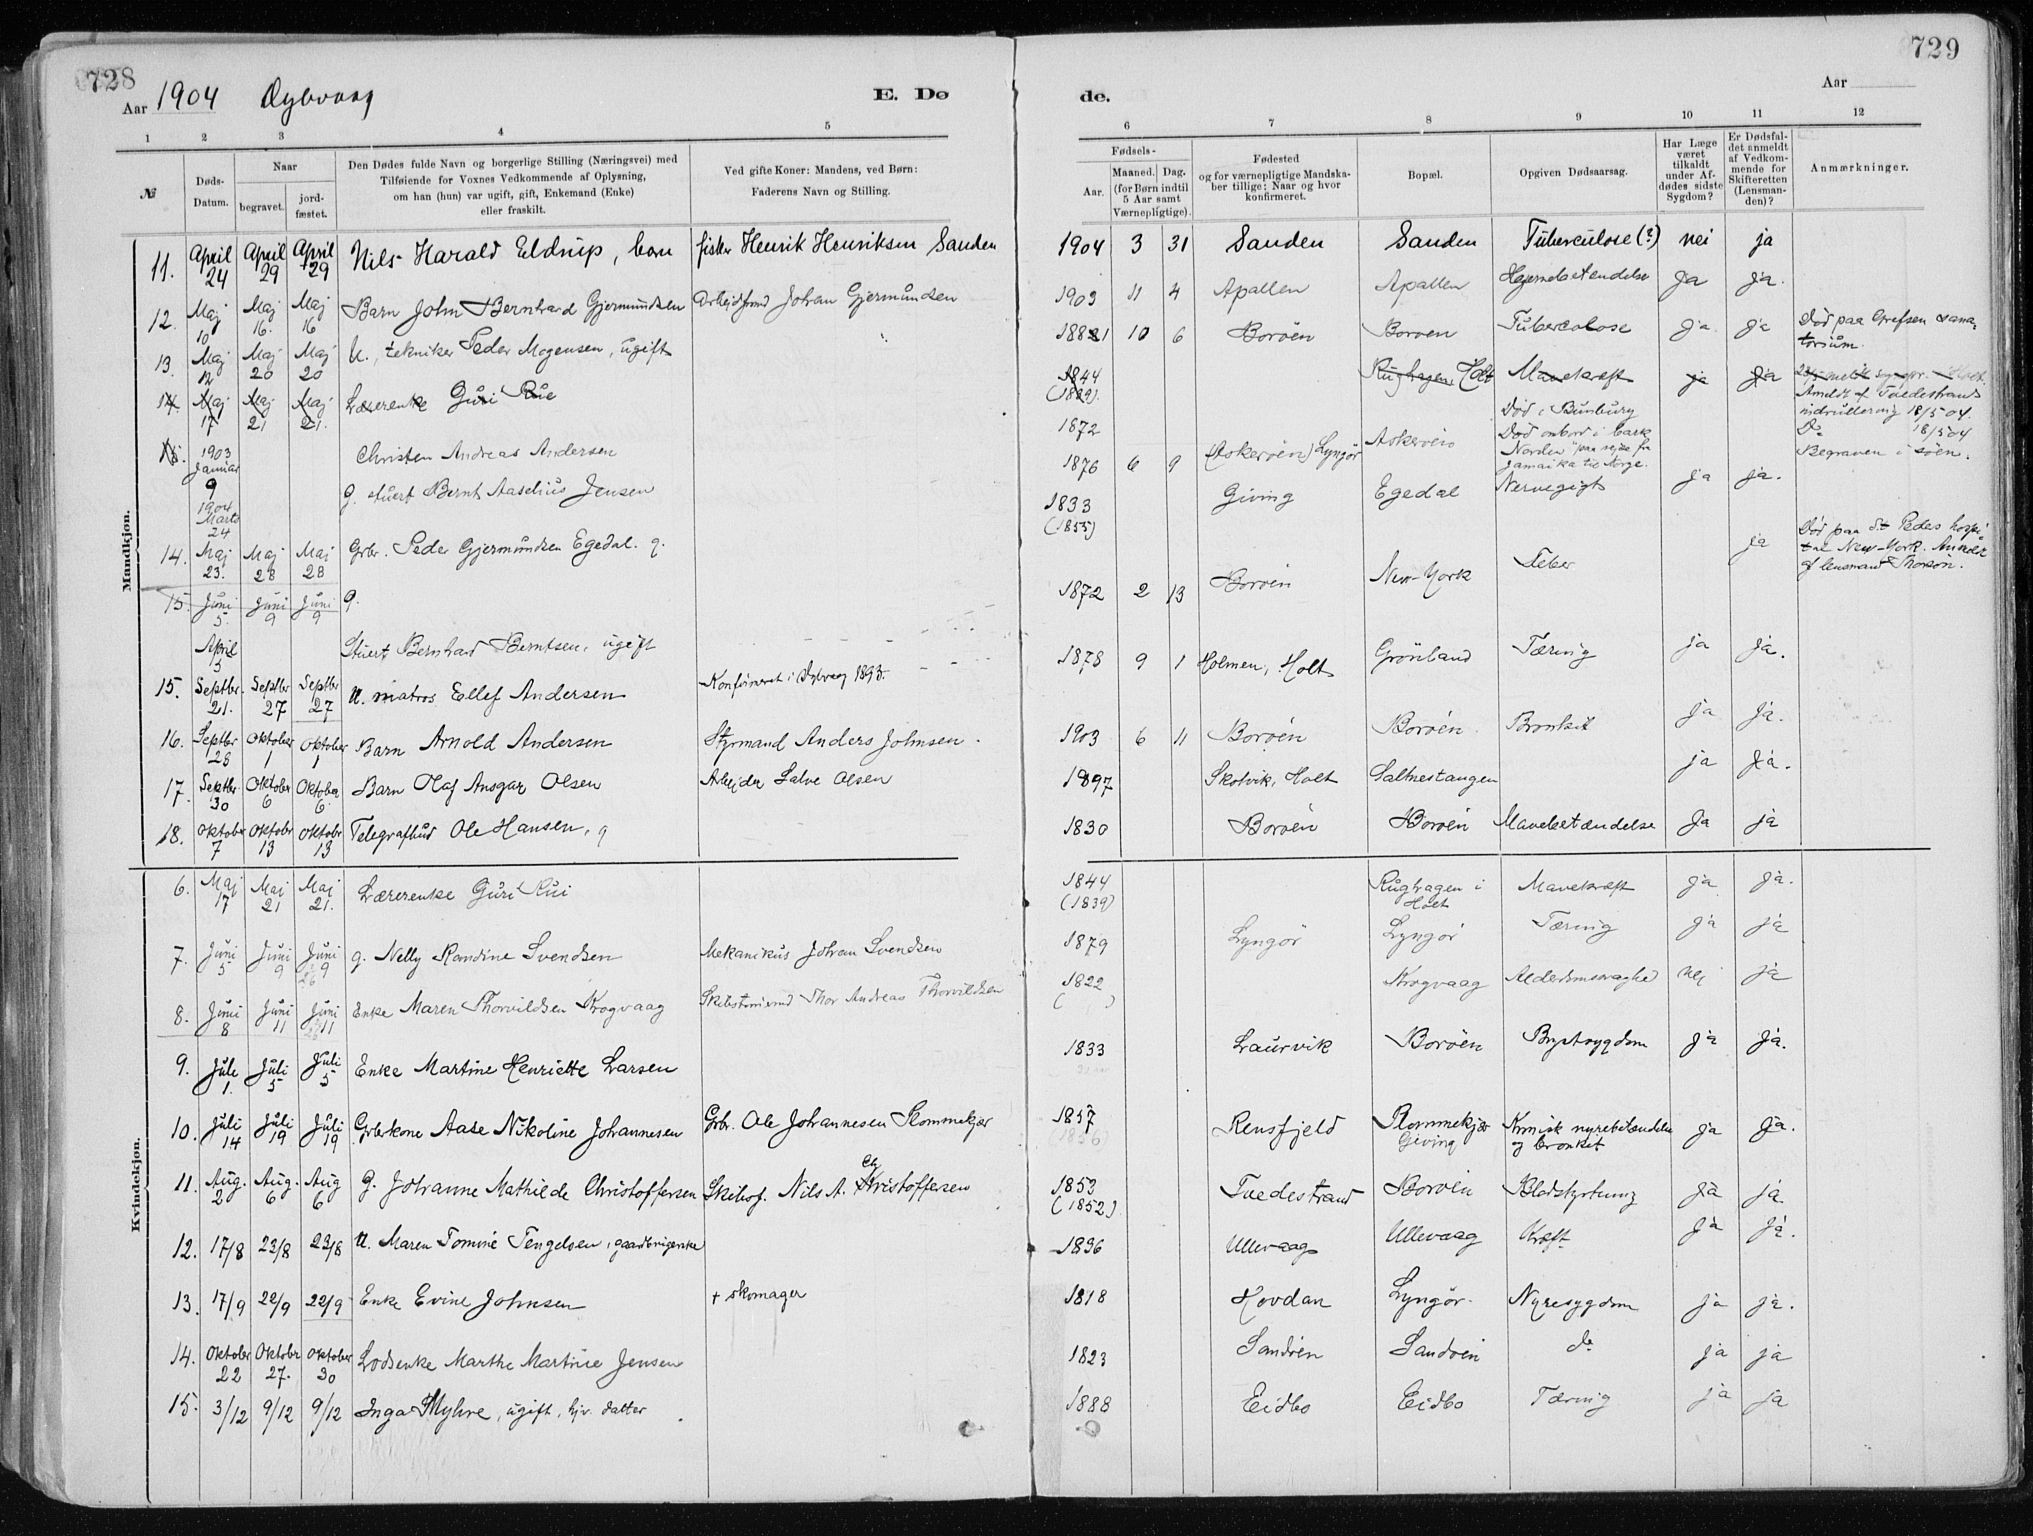 728
729
Aar 1904 Dybvaag
E. Dø
de.
Aar
1 2 3 4 5
6 7 8 9 10 11 12
№
Døds-
Datum.
Naar
begravet.
jord-
fæstet.
Den Dødes fulde Navn og borgerlige Stilling (Næringsvei) med
Tilføiende for Voxnes Vedkommende af Oplysning,
om han (hun) var ugift, gift, Enkemand (Enke)
eller fraskilt.
Ved gifte Koner: Mandens, ved Børn:
Faderens Navn og Stilling.
Fødsels-
Aar.
Maaned. Dag.
(for Børn indtil
5 Aar samt
Værnepligtige).
Fødested
og for værnepligtige Mandska-
ber tillige: Naar og hvor
konfirmeret.
Bopæl.
Opgiven Dødsaarsag.
Har Læge
været
tilkaldt
under Af-
dødes sidste
Sygdom?
Er Dødsfal-
det anmeldt
af Vedkom-
mende for
Skifteretten
(Lensman-
den)?
Anmærkninger.
Mandkjøn.
11. April 24 April 29 April 29 Nils Harald Eldrup, barn fisker Henrik Henriksen Sanden 1904 3 31 Sanden Sanden Tuberculose (?) nei ja
12. Maj 10 Maj 16. Maj 16 Barn John Bernhard Gjermundsen Arbejdsmd Johan Gjermundsen 1903 11 4 Apallen Apallen Hjernebetendelse Ja Ja.
13. Maj 12 Maj 20 Maj 20 U., tekniker Peder Mogensen, ugift 1881 10 6 Borøen Borøen Tuberculose Ja Ja Død paa Grefsen sana-
torium.
14. Maj 17 Maj 21 Maj 21. Lærerenke Guri Rue 1844 (1839). Rughagen Holt Mavekræft ja Ja
15. 1903 Januar 9 Christen Andreas Andersen 1872 Askerøen Død i Bunbury Anm. af Tvedestrands
indrullering 18/5 04.
1904 Marts 24 g. stuert Bernt Aaselius Jensen 1876 6 9 (Askerøen) Lyngør Død ombord i bark
"Norden" paa rejse fra
Jamaika til Norge. Do 18/5 04
Begraven i søen.
14. Maj 23. Maj 28 Maj 28 Grbr. Peder Gjermundsen Egedal. g. 1833 (1855) Giving Egedal Nervegigt ja ja.
15. Juni 5. Juni 9 Juni 9 g.
April 5 Stuert Bernhard Berntsen, ugift 1872 2 13 Borøen New-York Feber ja Død paa St Peders hospi-
tal New-York. Anmeldt
af lensmand Thorsøn.
15. Septbr. 21. Septbr 27 Septbr 27 U. matros Ellef Andersen Konfirmeret i Dybvaag 1893. 1878 9 1 Holmen, Holt Grønland Tæring ja Ja.
16. Septbr 28 Oktober 1 Oktober 1 Barn Arnold Andersen Styrmand Anders Johnsen. 1903 6 11 Borøen Borøen. Bronkit ja Ja.
17. Septbr 30 Oktober 6 Oktober 6 Barn Olaf Ansgar Olsen Arbejder Salve Olsen 1897 Skotvik, Holt Saltnestangen ja Ja.
18. Oktober 7 Oktobr 13 Oktobr 13 Telegrafbud Ole Hansen, g 1830 Borøen Borøen Mavebetændelse Ja ja
Kvindekjøn.
6. Maj 17 Maj 21 Maj 21. Lærerenke Guri Rui 1844 (1839) Rughagen i
Holt Mavekræft ja ja.
7. Juni 5 Juni 9 Juni 9 g. Nelly Randine Svendsen Mekanikus Johan Svendsen 1879 Lyngør Lyngør Tæring ja ja
8. Juni 8 Juni 11 Juni 11 Enke Maren Thorvildsen Krogvaag Skibstømmd Thor Andreas Thorvildsen 1822 ( ) Krogvaag Alderdomssvaghed nej ja
9. Juli 1. Juli 5 Juli 5 Enke Martine Henriette Larsen 1833 Laurvik Borøen Brystsygdom ja ja.
10. Juli 14 Juli 19 Juli 19 Grbrkone Aase Nikoline Johannesen Grbr. Ole Johannesen Plommekjær 1857 (1856) Rensfjeld Plommekjær
Giving Kronisk nyrebetændelse
og bronkit ja Ja.
11. Aug. 2 Aug. 6 Aug 6 G. Johanne Mathilde Christoffersen Skibsf. Nils A. Christoffersen 1853 (1852) Tvedestrand Borøen Blodstyrtning Ja ja
12. 17/8 23/8 23/8 U. Maren Tomine Tengelsen, gaardbrugerenke 1836 Ullevaag Ullevaag Kræft ja ja.
13. 17/9 22/9 22/9 Enke Evine Johnsen + skomager 1818 Hovdan Lyngør. Nyresygdom ja ja.
14. Oktober 22 Oktobr 27. Oktober 30 Lodsenke Marthe Martine Jensen 1823 Sandøen Sandøen do ja ja
15. 3/12 9/12 9/12 Inga Myhre, ugift, hjv. datter 1888 Eidbo Eidbo Tæring ja ja